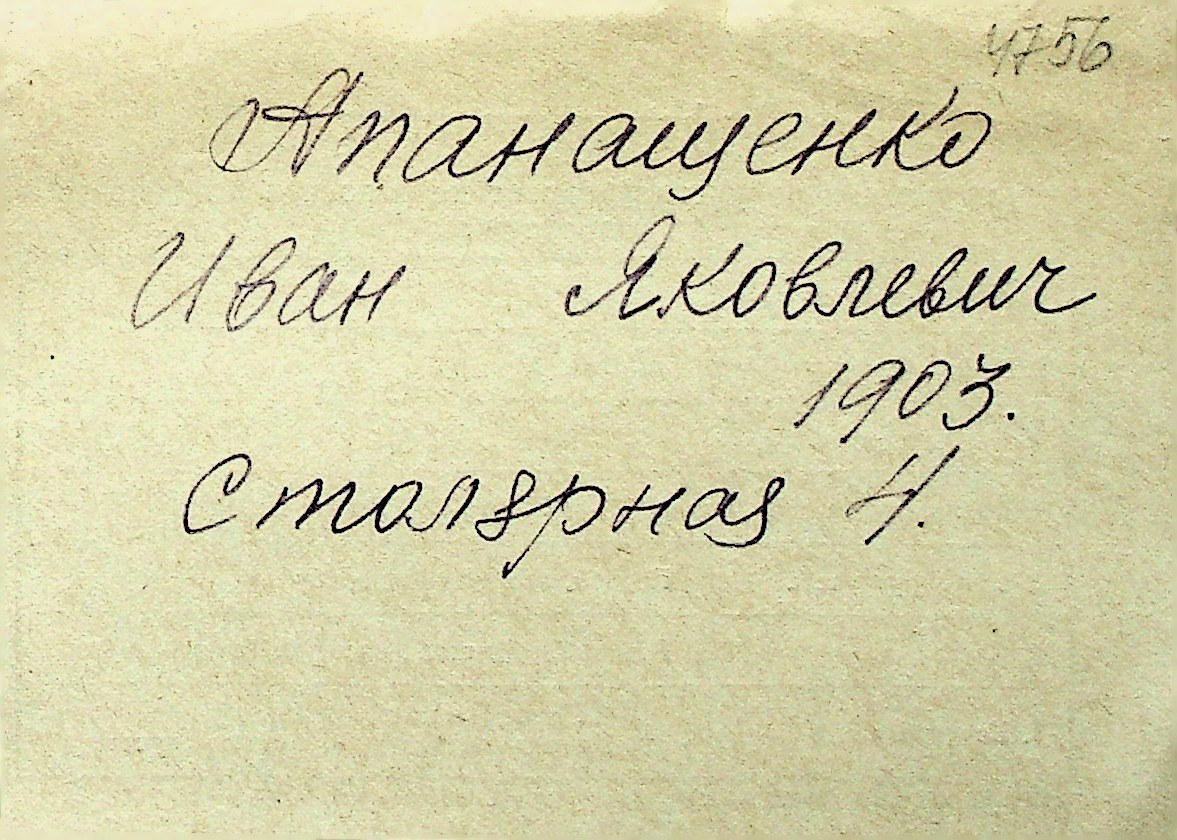 4756
Апанащенко
Иван Яковлевич
1903.
Столярная 4.